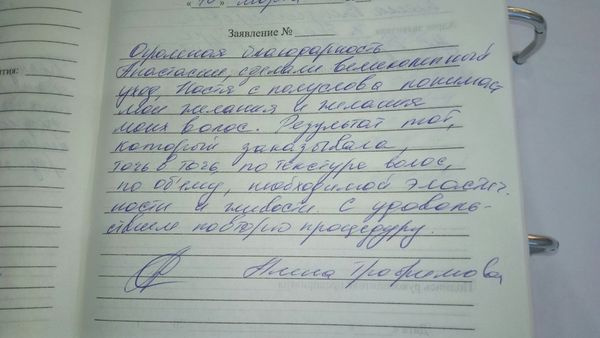 « 10 » марта
Заявление № ____
Огромная благодарность
Анастасии, сделали великолепный
уход. Настя с полуслова понимает
мои желания и желания
моих волос. Результат тот,
который заказывала,
точь в точь, по текстуре волос,
по объёму, необходимой эластич-
ности и живости. С удоволь-
ствием повторю процедуру.
Алина Трофимова